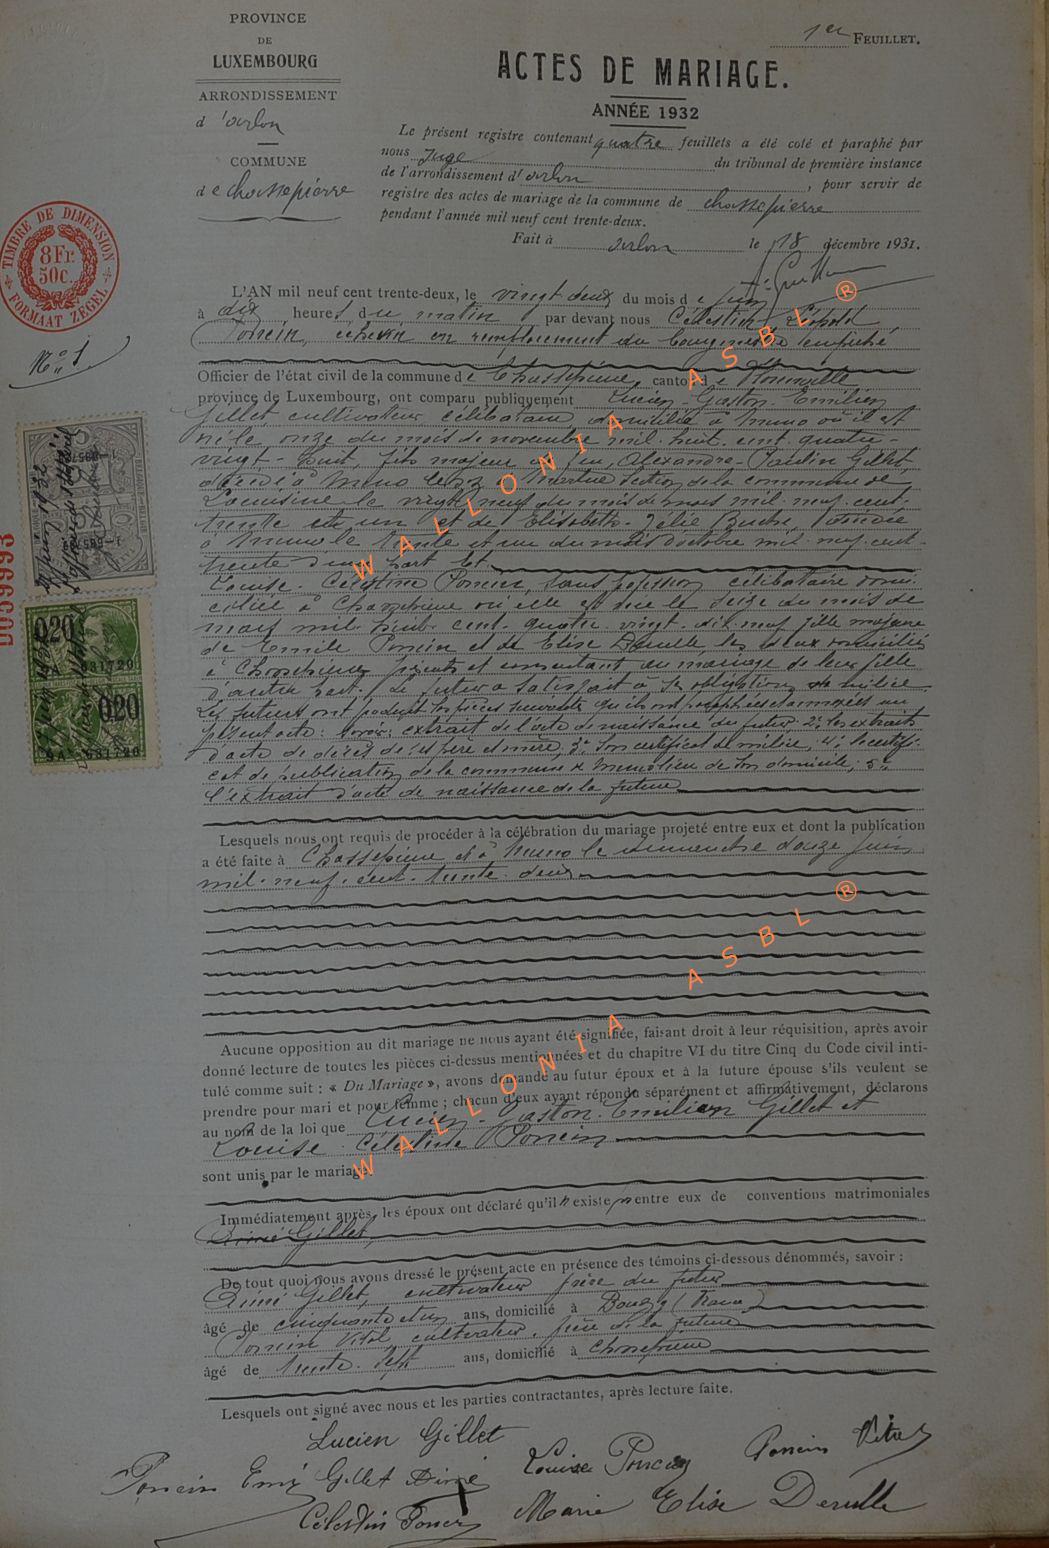 PROVINCE
DE
LUXEMBOURG
ARRONDISSEMENT
d'Arlon
COMMUNE
de Chassepierre
1er FEUILLET.
ACTES DE MARIAGE.
ANNÉE 1932
Le présent registre contenant quatre feuillets a été coté et paraphé par
nous Juge du tribunal de première instance
de l'arrondissement d'Arlon, pour servir de
registre des actes de mariage de la commune de Chassepierre
pendant l'année mil neuf cent trente-deux.
Fait à Arlon le 18 décembre 1931.
TIMBRE DE DIMENSION
8Fr.
50c.
FORMAAT ZEGEL
No 1
D059993
0,20
931720
0,20
931720
L'AN mil neuf cent trente-deux, le vingt deux du mois de juin
à dix heures du matin par devant nous Célestin Léopold
Poncin, échevin en remplacement du bourgmestre empêché
Officier de l'état civil de la commune de Chassepierre, canton de Florenville
province de Luxembourg, ont comparu publiquement Lucien-Gaston-Emilien
Gillet cultivateur célibataire domicilié à Muno où il est
né le onze du mois de novembre mil huit cent quatre-
vingt-huit, fils majeur de feu Alexandre-Paulin Gillet
décédé à Martué section de la commune de
Lacuisine le vingt neuf du mois de mars mil neuf cent
trente et un et de Elisabeth décédée
à Muno le trente et un du mois d'octobre mil neuf cent
trente d'une part et
Louise-Célestine Poncin, sans profession célibataire domi-
ciliée à Chassepierre où elle est née le seize du mois de
mars mil huit cent quatre vingt dix neuf fille majeure
de Emile Poncin et de Elise Derulle, les deux domiciliés
à Chassepierre présents et consentant au mariage de leur fille
d'autre part. Le futur a satisfait à ses obligations de milice
Les futurs ont produit les pièces suivantes qui ont été annexées au
présent acte: savoir: extrait de l'acte de naissance du futur, 2° les extraits
d'acte de décès de ses père et mère, 3° son certificat de milice, 4° le certifi-
cat de publication de la commune de Muno lieu de son domicile; 5°
l'extrait d'acte de naissance de la future
Lesquels nous ont requis de procéder à la célébration du mariage projeté entre eux et dont la publication
a été faite à Chassepierre et à Muno le dimanche douze juin
mil-neuf-cent-trente-deux
Aucune opposition au dit mariage ne nous ayant été signifiée, faisant droit à leur réquisition, après avoir
donné lecture de toutes les pièces ci-dessus mentionnées et du chapitre VI du titre Cinq du Code civil inti-
tulé comme suit : « Du Mariage », avons demandé au futur époux et à la future épouse s'ils veulent se
prendre pour mari et pour femme ; chacun d'eux ayant répondu séparément et affirmativement, déclarons
au nom de la loi que Lucien-Gaston-Emilien Gillet et
Louise Célestine Poncin
sont unis par le mariage.
Immédiatement après, les époux ont déclaré qu'il n'existe pas entre eux de conventions matrimoniales
Aimé Gillet
De tout quoi nous avons dressé le présent acte en présence des témoins ci-dessous dénommés, savoir :
Aimé Gillet, cultivateur frère du futur
âgé de cinquante et un ans, domicilié à
Poncin Vital cultivateur, frère de la future
âgé de trente-sept ans, domicilié à Chassepierre
Lesquels ont signé avec nous et les parties contractantes, après lecture faite.
Lucien Gillet
Poncin Emi Gillet Aimé Louise Poncin Poncin Vital
Célestin Poncin Marie Elise Derulle
WALLONIA ASBL ®
WALLONIA ASBL ®